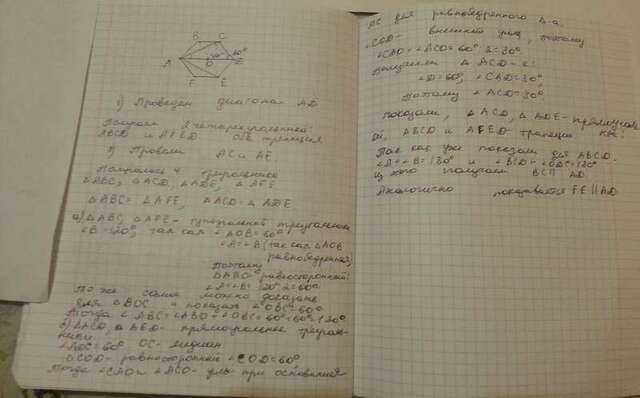 B C
A D
60°
F E
1) Проведем диагональ AD
Получим 2 четырехугольника
ABCD и AFED. Обе трапеции
2) Провели AC и AE
Получилось 4 треугольника
△ABC, △ACD, △ADE, △AFE
△ABC = △AFE, △ACD = △ADE
а) △ABC, △AFE - тупоугольные треугольники
∠B = 120°, так как ∠AOB = 60°
∠A = ∠B (так как △AOB
равнобедренная)
Поэтому
△ABO равносторонний.
∠A = ∠B = 120°:2 = 60°
То же самое можно доказать
для △BOC и показать ∠OBC = 60°
Тогда ∠ABC = ∠ABO + ∠OBC = 60° + 60° = 120°
б) △ACD, △AED - прямоугольные треуголь-
ники
OC - медиан
△COD - равносторонний ∠COD = 60°
Тогда ∠CAO и ∠ACO - углы при основании
AC для равнобедренного △-а.
∠COD - внешний угол, поэтому
∠CAO = ∠ACO = 60°:2 = 30°
Получили △ ACD - с:
∠D = 60°, ∠CAD = 30°
Поэтому ∠ACD = 90°
показали, △ACD, △ADE - прямоугольн
ABCD и AFED - трапеции
Так как уже показали для ABCD.
∠A + ∠B = 180° и ∠BCD + ∠CDA = 180°
Из этого получаем BC || AD
Аналогично показывается FE || AD